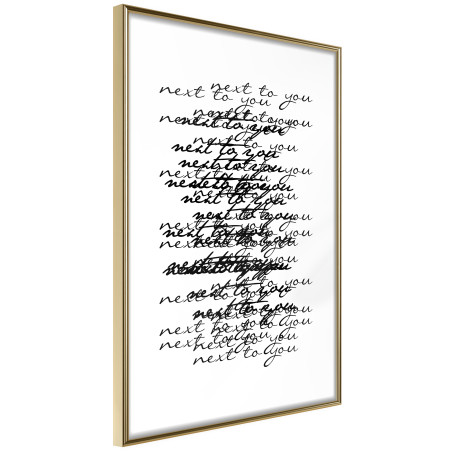 next to you
next to you
next to you
next to you
next to you
next to you
next to you
next to you
next to you
next to you
next to you
next to you
next to you
next to you
next to you
next to you
next to you
next to you
next to you
next to you
next to you
next to you
next to you
next to you